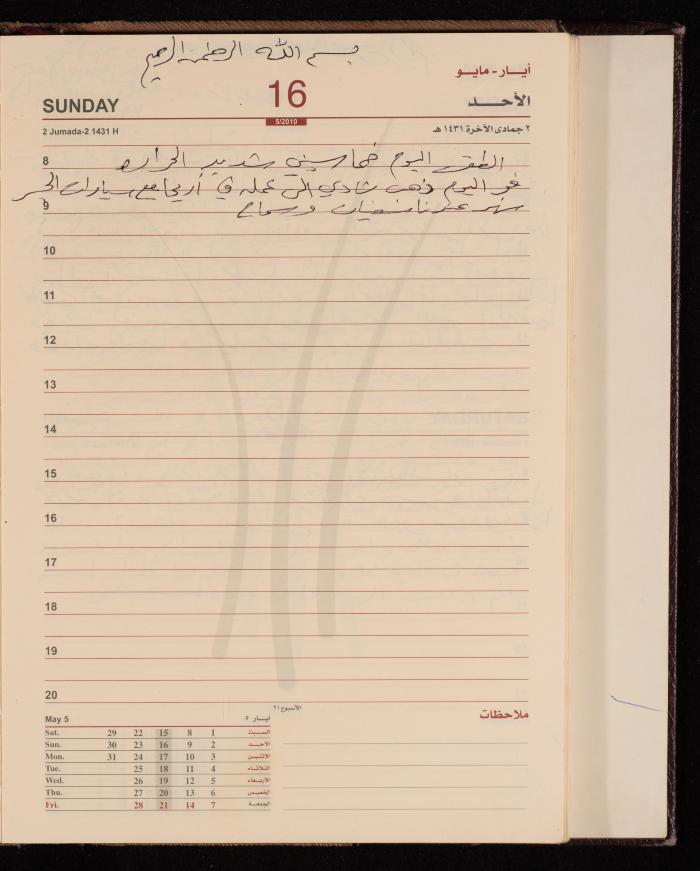 بسم الله الرحمن الرحيم
أيـار - مايو
SUNDAY
16
الأحــد
5/2010
2 Jumada-2 1431 H
٢ جمادى الآخرة ١٤٣١ هـ
8
الطقس اليوم خماسيني شديد الحراره
في اليوم ذهب شادي الى عمله في أريحا مع سيارات
9
سهر عندنا سفيان وسماح
10
11
12
13
14
15
16
17
18
19
20
الأسبوع ٢١
May 5 أيـار ٥
ملاحظات
Sat. 29 22 15 8 1 السبت
Sun. 30 23 16 9 2 الأحـد
Mon. 31 24 17 10 3 الاثنين
Tue. 25 18 11 4 الثلاثاء
Wed. 26 19 12 5 الأربعاء
Thu. 27 20 13 6 الخميس
Fri. 28 21 14 7 الجمعة